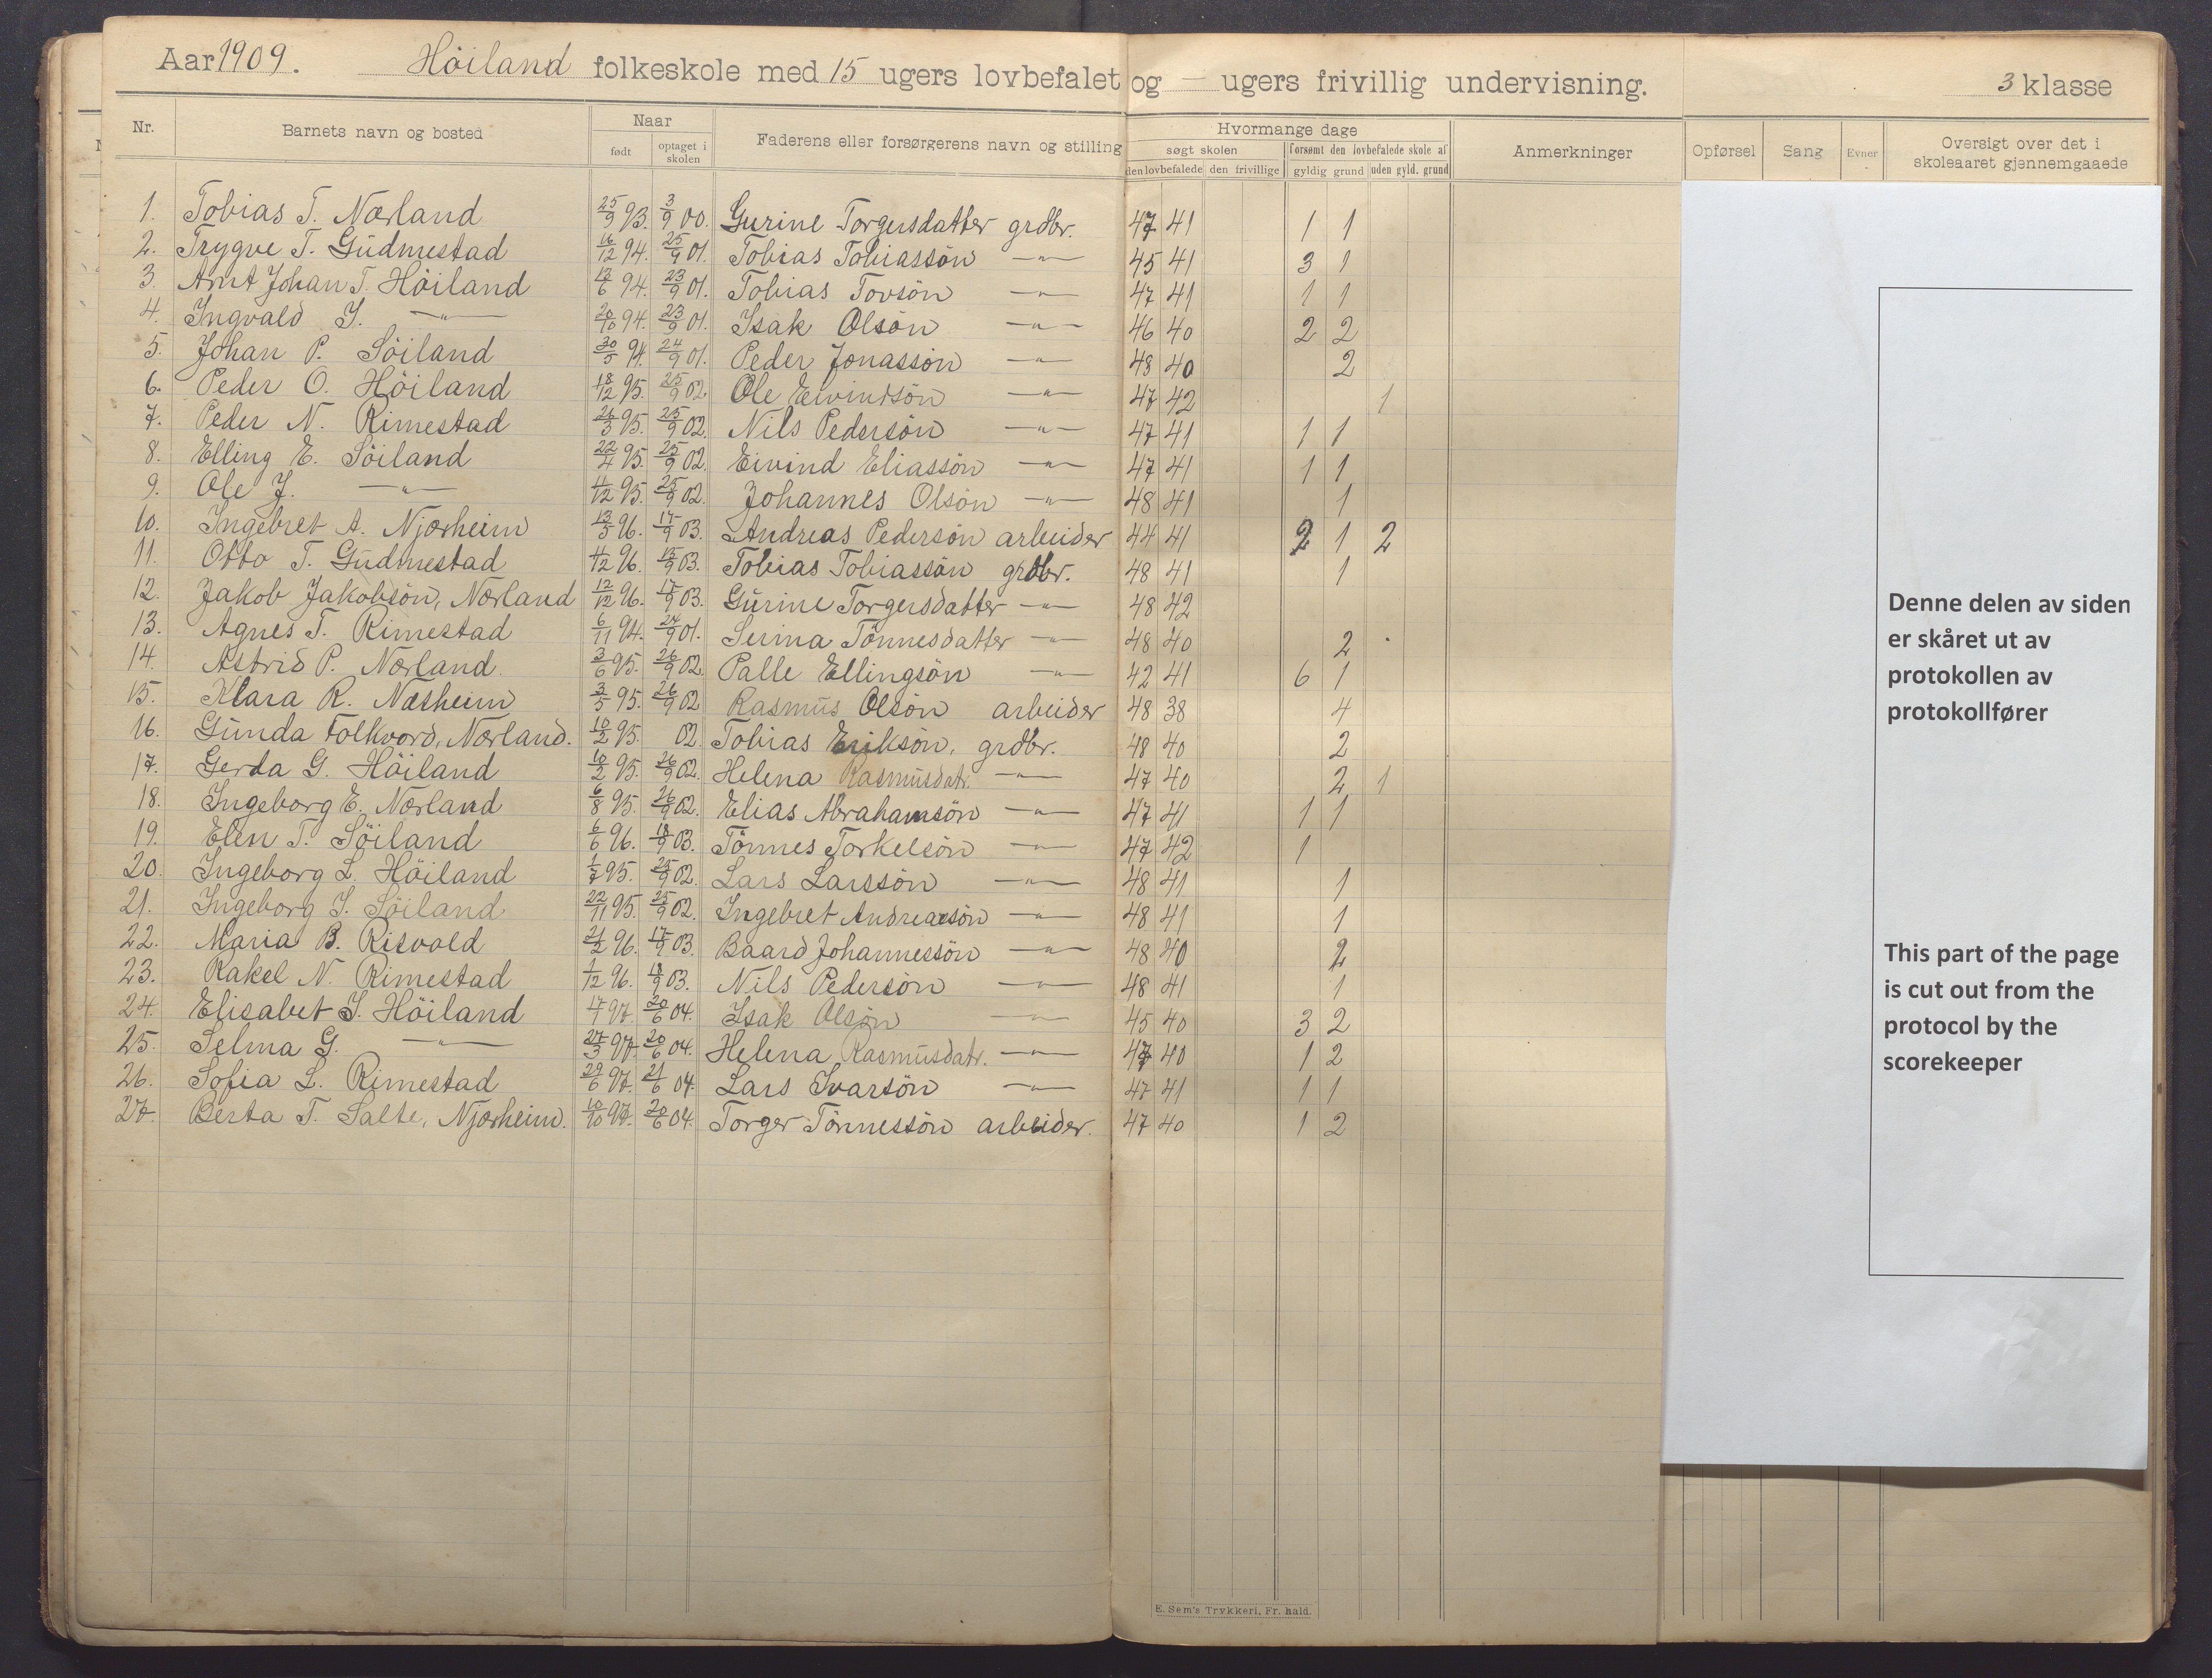 Aar 1909. Höiland folkeskole med 15 ugers lovbefalet og — ugers frivillig undervisning. 3 klasse
Nr. Barnets navn og bosted Naar født optaget i skolen Faderens eller forsørgerens navn og stilling Hvormange dage søgt skolen den lovbefalede den frivillige forsømt den lovbefalede skole af gyldig grund uden gyld. grund Anmerkninger Opførsel Sang Evner Oversigt over det i skoleaaret gjennemgaaede
1. Tobias T. Nærland 25/9 93. 3/9 00. Gurine Torgersdatter grdbr. 47 41 1 1
2. Trygve T. Gudmestad 16/12 94. 25/9 01. Tobias Tobiassön —"— 45 41 3 1
3. Arnt Johan T. Höiland 12/6 94. 23/9 01. Tobias Tovsön —"— 47 41 1 1
4. Ingvald I. —"— 20/10 94. 23/9 01. Isak Olsön —"— 46 40 2 2
5. Johan P. Söiland 30/5 94. 24/9 01. Peder Jonassön —"— 48 40 2
6. Peder O. Höiland 18/12 95. 25/9 02. Ole Eivindsön —"— 47 42 1
7. Peder N. Rimestad 26/3 95. 25/9 02. Nils Pedersön —"— 47 41 1 1
8. Elling E. Söiland 22/4 95. 25/9 02. Eivind Eliassön —"— 47 41 1 1
9. Ole J. —"— 4/12 95. 25/9 02. Johannes Olsön —"— 48 41 1
10. Ingebret A. Njærheim 13/3 96. 17/9 03. Andreas Pedersön arbeider 44 41 2 1 2
11. Otto T. Gudmestad 4/12 96. 15/9 03. Tobias Tobiassön grdbr. 48 41 1
12. Jakob Jakobsön, Nærland 12/12 96. 17/9 03. Gurine Torgersdatter —"— 48 42
13. Agnes T. Rimestad 6/11 94. 24/9 01. Serina Tönnesdatter —"— 48 40 2
14. Astrid P. Nærland 3/6 95. 26/9 02. Palle Ellingsön —"— 42 41 6 1
15. Klara R. Næsheim 3/5 95. 26/9 02 Rasmus Olsön arbeider 48 38 4
16. Gunda Folkvord, Nærland. 10/2 95. 02. Tobias Eriksön, grdbr. 48 40 2
17. Gerda G. Höiland 10/2 95. 26/9 02. Helena Rasmusdatr. —"— 47 40 2 1
18. Ingeborg E. Nærland 6/8 95. 26/9 02. Elias Abrahamsön —"— 47 41 1 1
19. Elen T. Söiland 6/6 96. 18/9 03. Tönnes Torkelsön —"— 47 42 1
20. Ingeborg L. Höiland 1/7 95. 25/9 02. Lars Larssön —"— 48 41 1
21. Ingeborg I. Söiland 22/11 95. 25/9 02. Ingebret Andreassön —"— 48 41 1
22. Maria B. Risvold 21/2 96. 17/9 03. Baard Johannessön —"— 48 40 2
23. Rakel N. Rimestad 1/12 96. 18/9 03. Nils Pedersön —"— 48 41 1
24. Elisabet I. Höiland 17/1 97. 20/6 04. Isak Olsön —"— 45 40 3 2
25. Selma G. —"— 27/3 97. 20/6 04. Helena Rasmusdatr. —"— 47 40 1 2
26. Sofia L. Rimestad 29/6 97. 21/6 04. Lars Ivarsön —"— 47 41 1 1
27. Berta T. Salte, Njærheim. 10/10 97. 20/6 04. Torger Tönnessön arbeider. 47 40 1 2
E. Sem's Trykkeri, Fr. hald.
Denne delen av siden
er skåret ut av
protokollen av
protokollfører
This part of the page
is cut out from the
protocol by the
scorekeeper